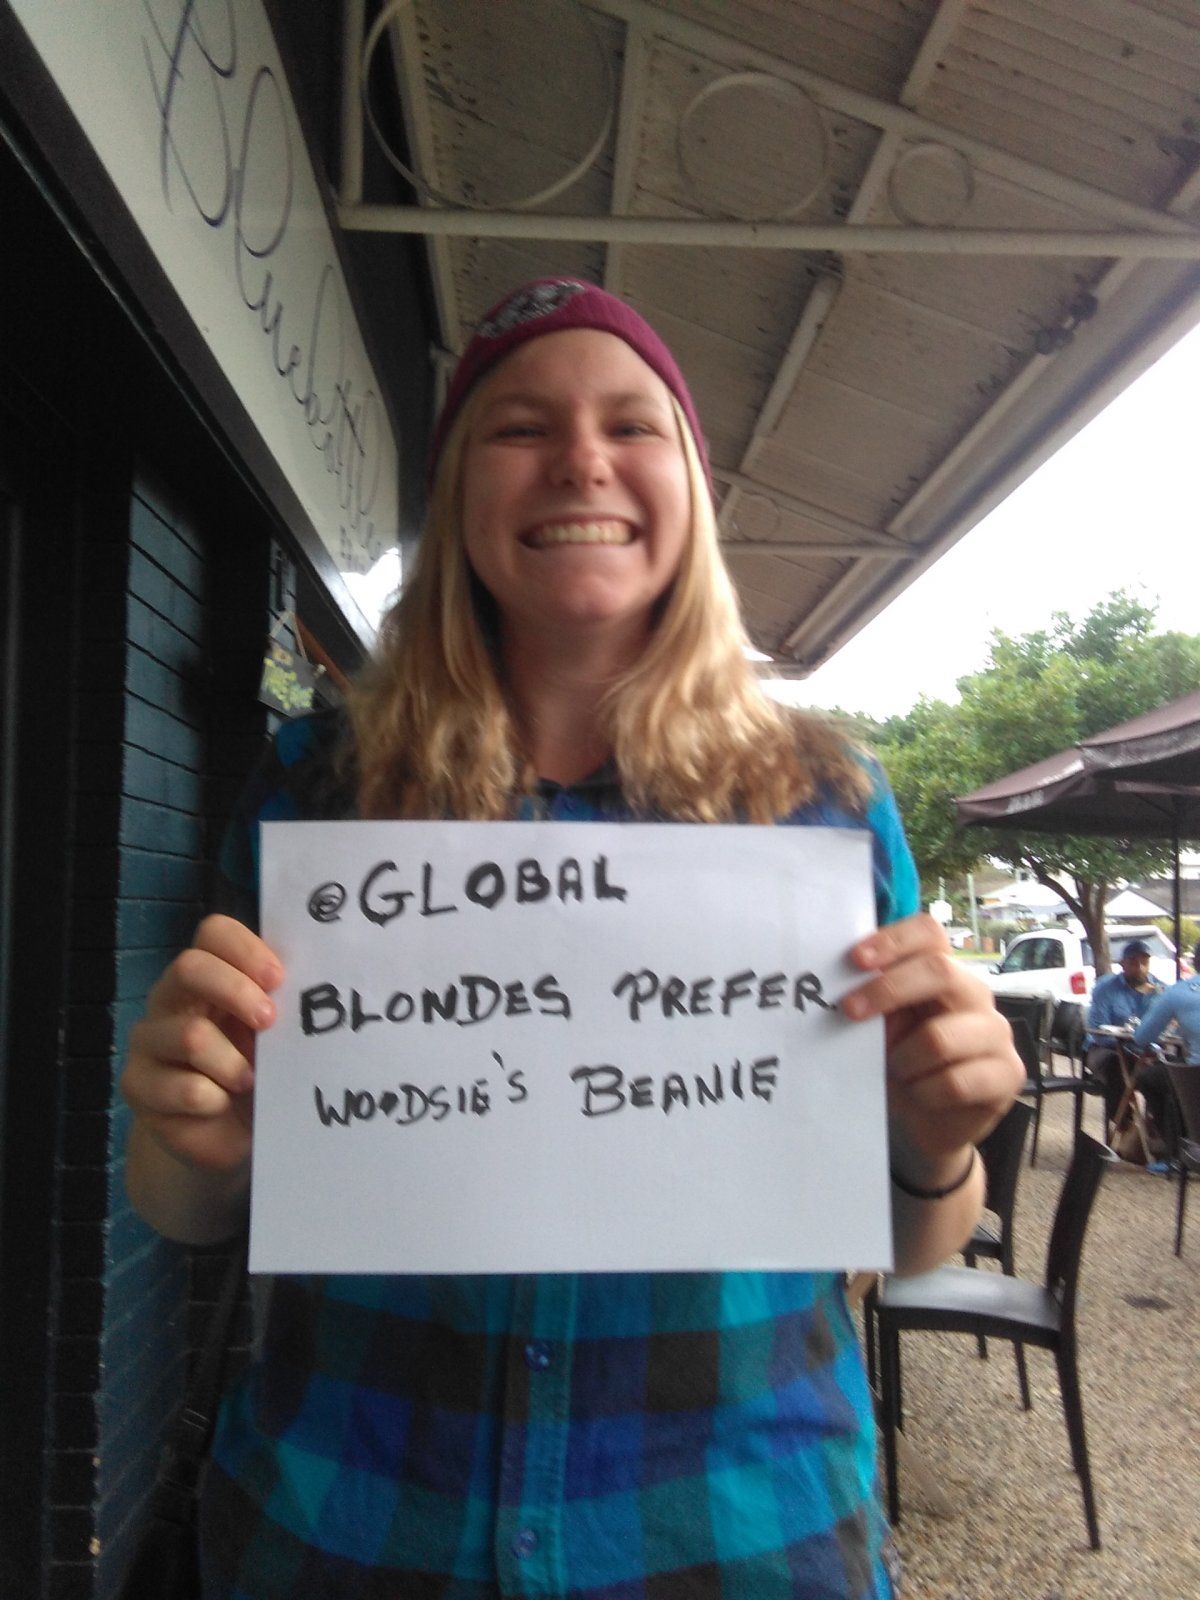 @GLOBAL
BLONDES PREFER
WOODSIE'S BEANIE